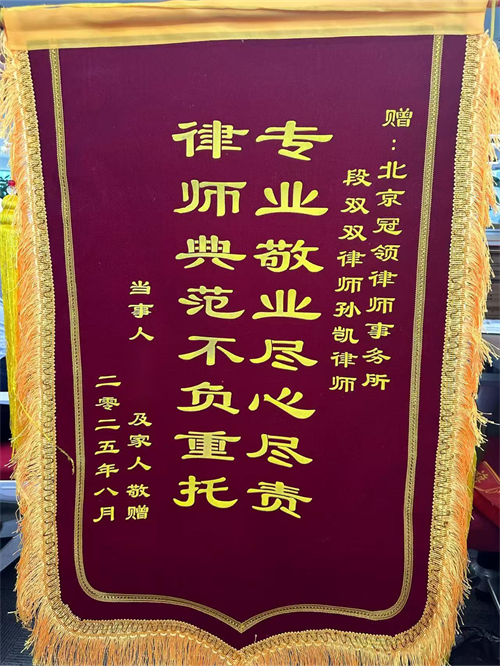 赠：北京冠领律师事务所
段双双律师孙凯律师
专业敬业尽心尽责
律师典范不负重托
当事人 及家人敬赠
二零二五年八月